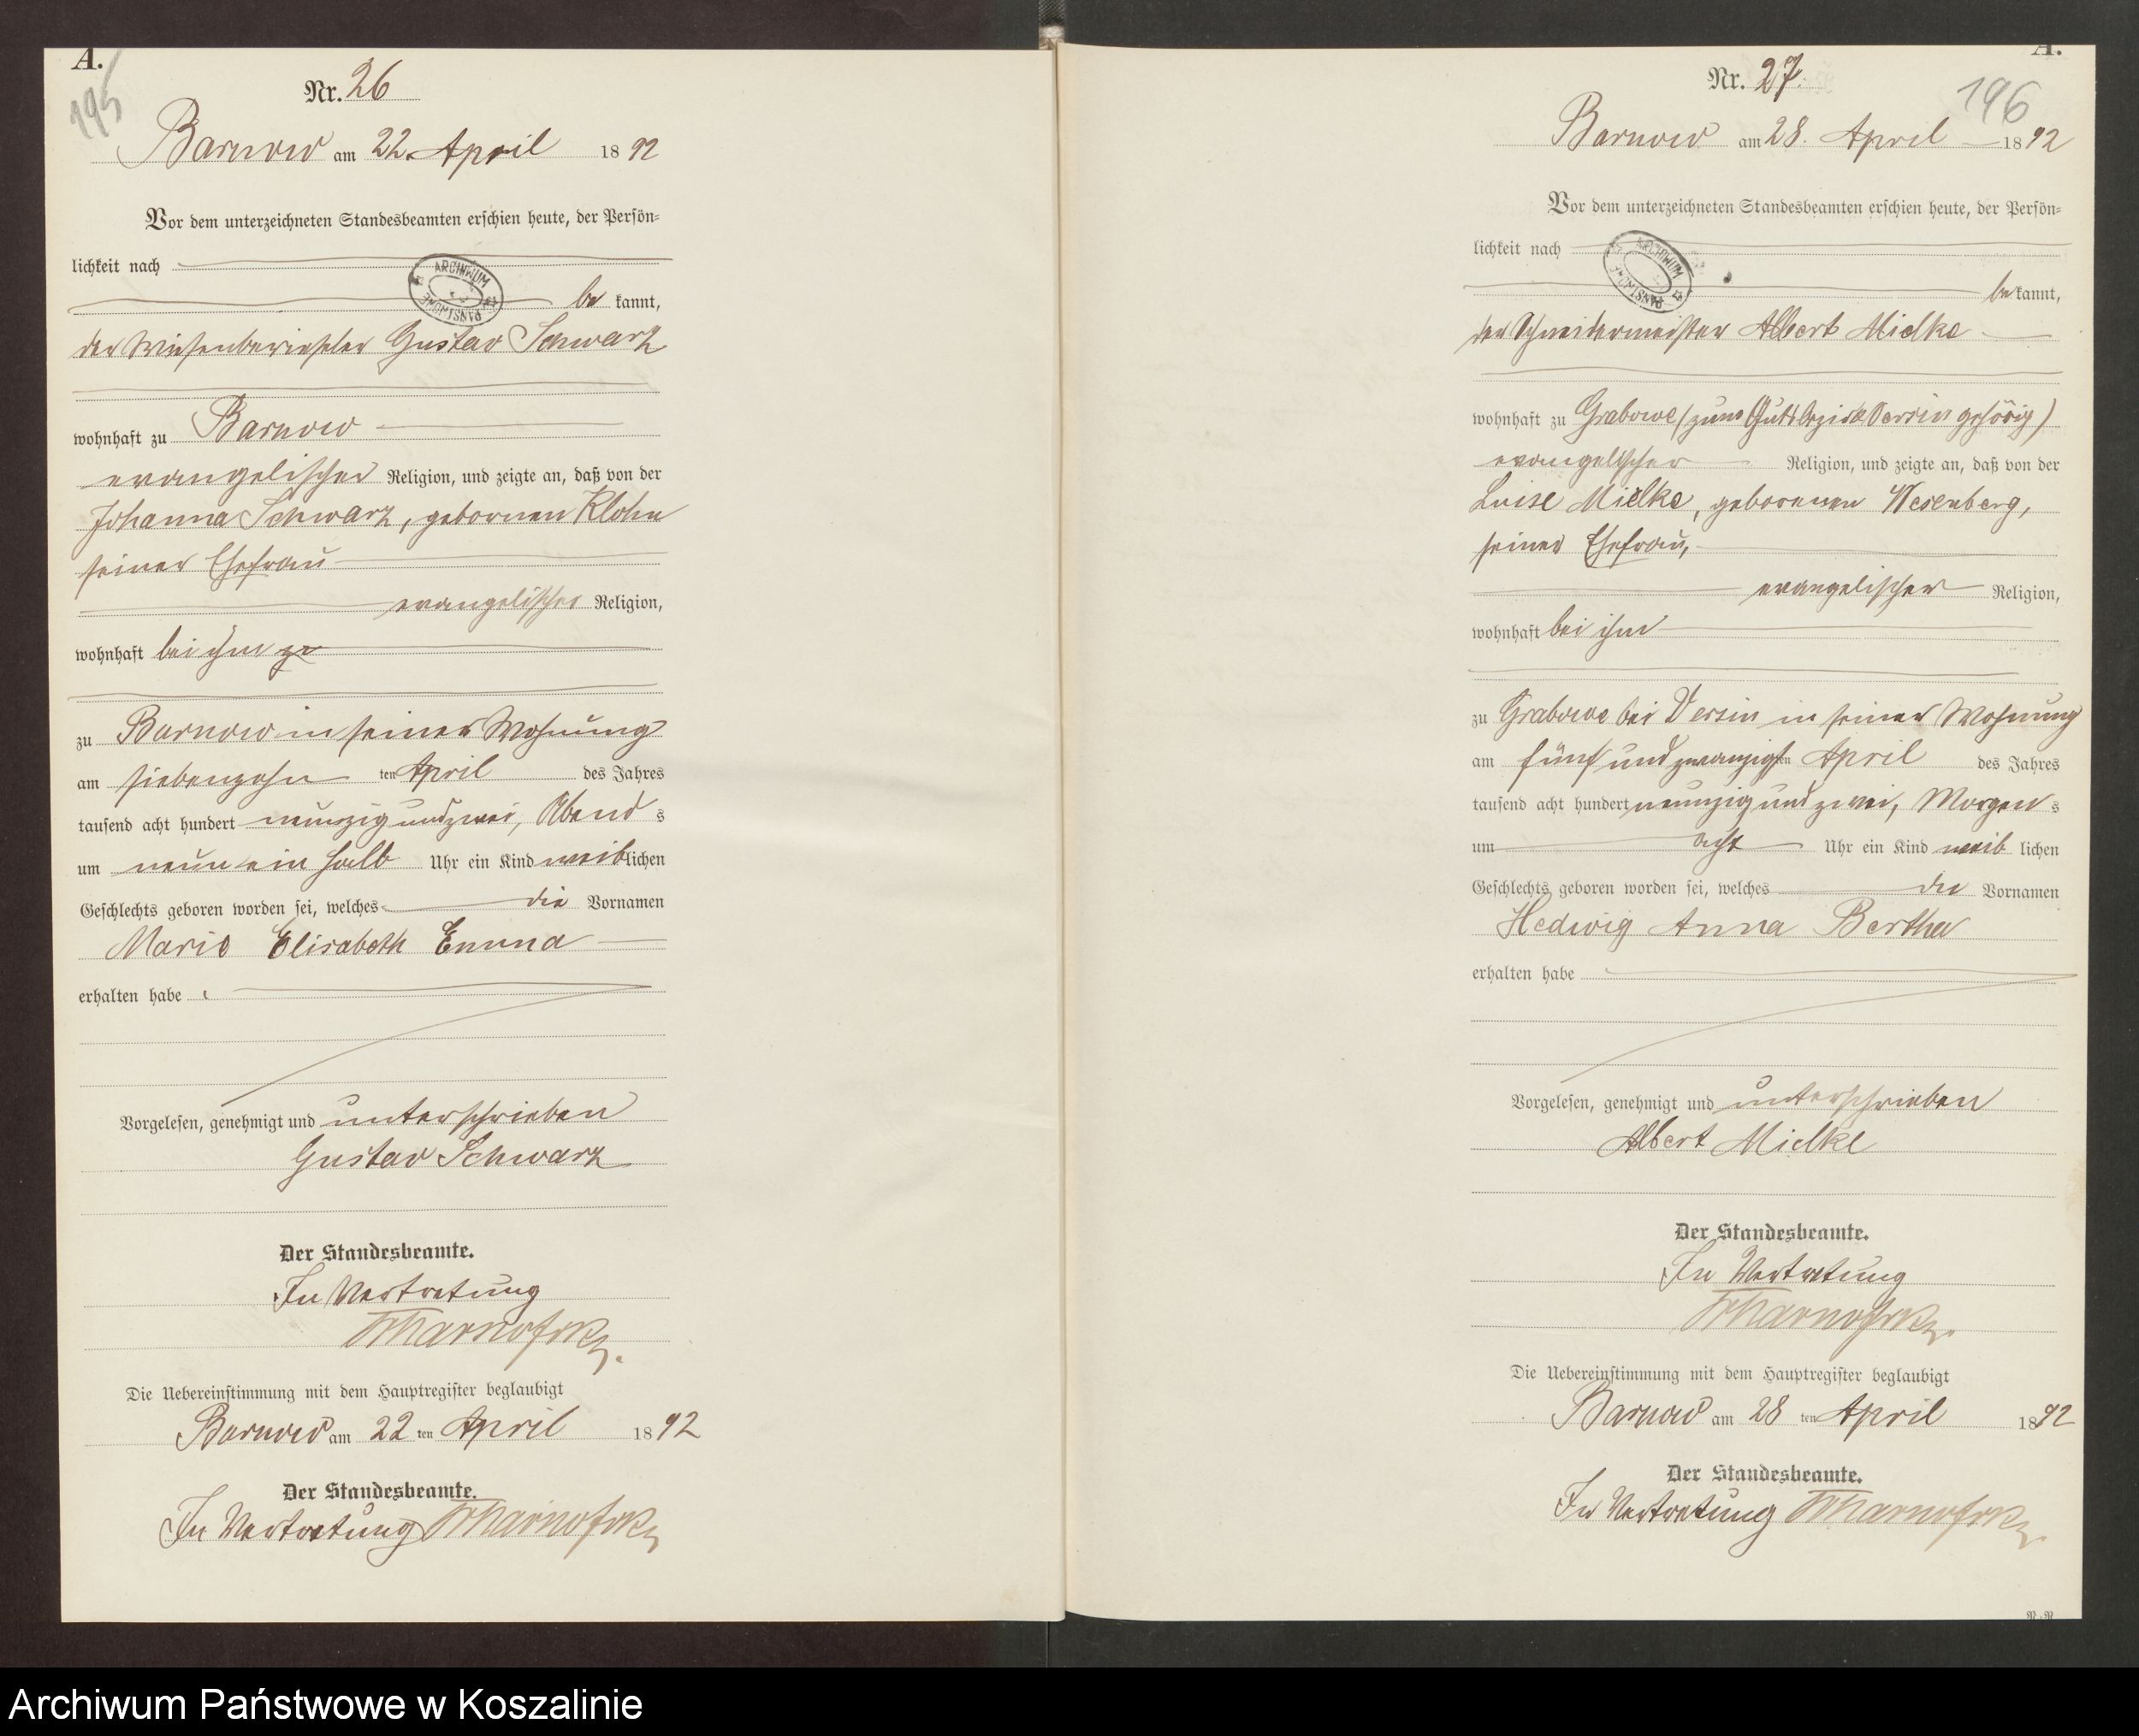 A.
195
Nr. 26
Barnow am 22. April 1892
Vor dem unterzeichneten Standesbeamten erschien heute, der Persön-
lichkeit nach
ARCHIWUM PAŃSTWOWE
be kannt,
der Gustav Schwarz
wohnhaft zu Barnow
evangelischer Religion, und zeigte an, daß von der
Johanna Schwarz, gebornen Klohn
seiner Ehefrau
evangelischer Religion,
wohnhaft bei ihm
zu Barnow in seiner Wohnung
am siebenzehn ten April des Jahres
tausend acht hundert neunzig und zwei, Abend s
um neun ein halb Uhr ein Kind weiblichen
Geschlechts geboren worden sei, welches die Vornamen
Marie Elisabeth Emma
erhalten habe
Vorgelesen, genehmigt und unterschrieben
Gustav Schwarz
Der Standesbeamte.
In Vertretung
Die Uebereinstimmung mit dem Hauptregister beglaubigt
Barnow am 22 ten April 1892
Der Standesbeamte.
In Vertretung
A.
196
Nr. 27.
Barnow am 28. April 1892
Vor dem unterzeichneten Standesbeamten erschien heute, der Persön-
lichkeit nach
ARCHIWUM PAŃSTWOWE
be kannt,
der Schneidermeister Albert Mielke
wohnhaft zu Grabowe (zum Gutsbezirk Versin gehörig)
evangelischer Religion, und zeigte an, daß von der
Luise Mielke, geborenen Wesenberg,
seiner Ehefrau,
evangelischer Religion,
wohnhaft bei ihm
zu Grabowe bei Versin in seiner Wohnung
am fünf und zwanzigsten April des Jahres
tausend acht hundert neunzig und zwei, Morgen s
um acht Uhr ein Kind weib lichen
Geschlechts geboren worden sei, welches die Vornamen
Hedwig Anna Bertha
erhalten habe
Vorgelesen, genehmigt und unterschrieben
Albert Mielke
Der Standesbeamte.
In Vertretung
Die Uebereinstimmung mit dem Hauptregister beglaubigt
Barnow am 28 ten April 1892
Der Standesbeamte.
In Vertretung
Archiwum Państwowe w Koszalinie